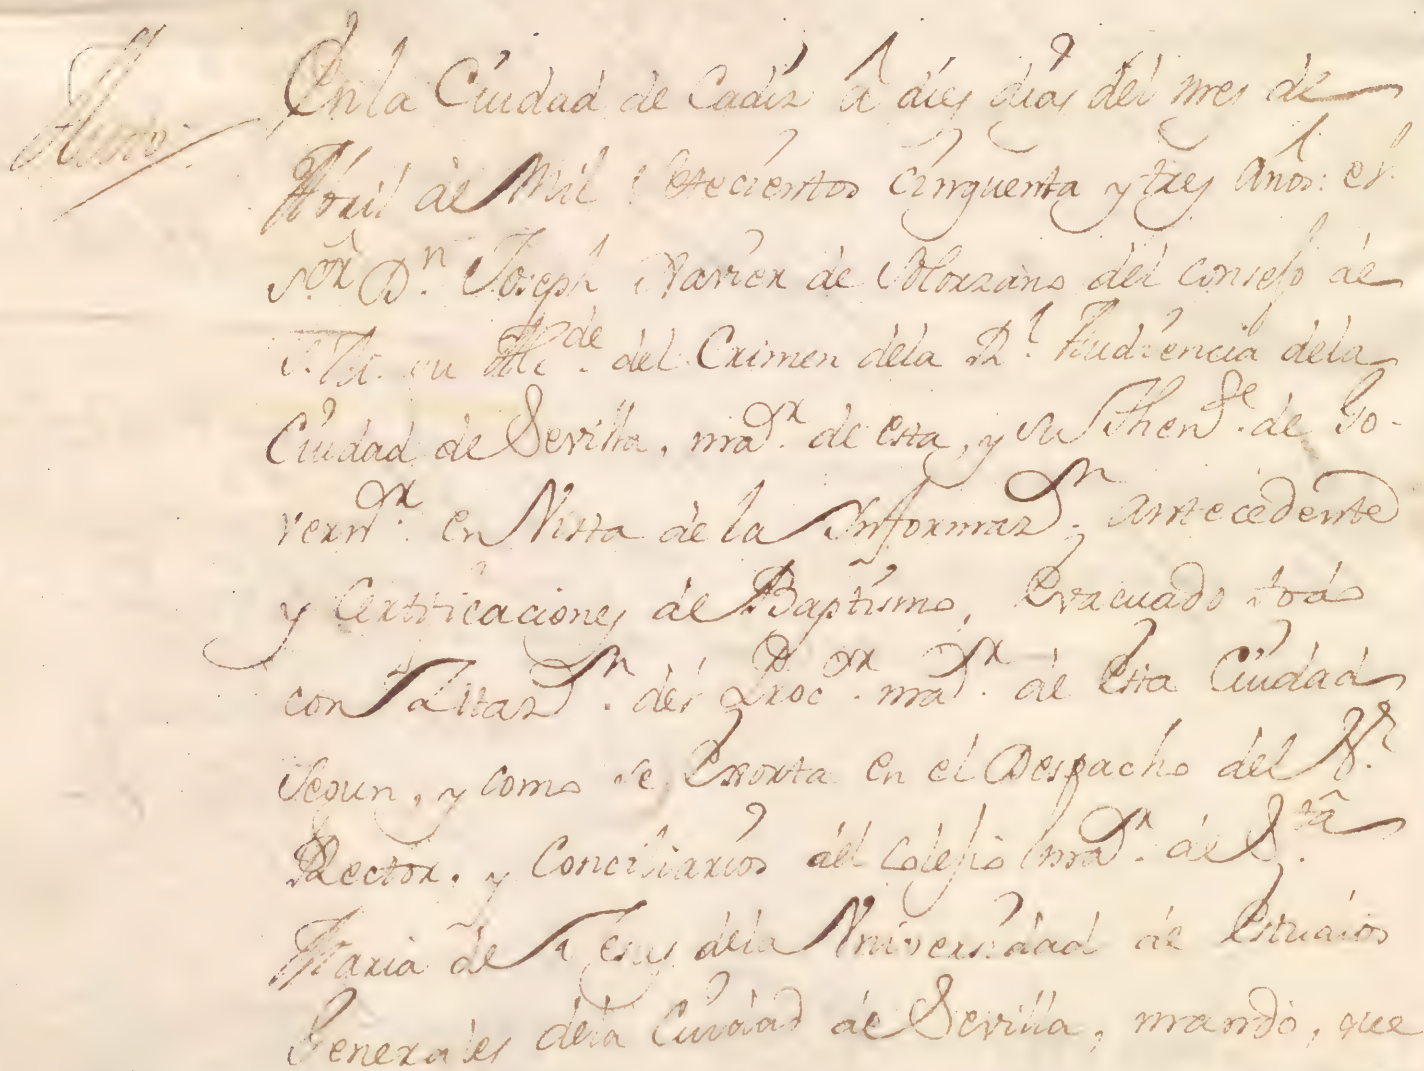 Auto
En la Ciudad de Cadiz â dies dias del mes de
Abril de Mil setecientos cinquenta y tres años: el
S.or D.n Joseph Xavier de Solorzano del consejo de
S. M. su Alc.de del Crimen dela R.l Audiencia dela
Ciudad de Sevilla, ma.or de esta, y su Then.te de Go-
vern.or en Vista de la Informaz.n antecedente
y Certificaciones de Baptismo, evacuado todo
con Zitaz.n del Proc.or ma.or de esta Ciudad
Segun, y como se Exorta en el Despacho del S.r
Rector, y Conciliarios del Colegio ma.or de S.ta
Maria de Jesus dela Universidad de Estudios
Generales dela Ciudad de Sevilla, mando, que